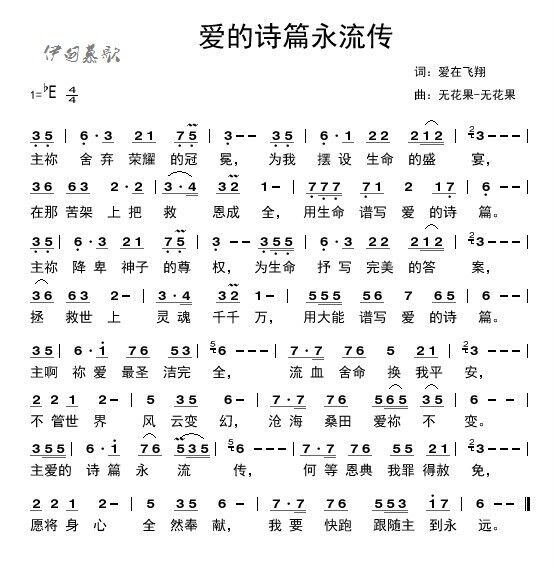 爱的诗篇永流传
伊甸慕歌
词：爱在飞翔
1=♭E 4/4
曲：无花果-无花果
3 5 | 6·3 2 1 7 5 | 3-- 3 5 | 6·1 2 2 2 1 2 | 3-- |
主祢 舍弃 荣耀 的冠 冕， 为我 摆设 生命 的盛 宴，
3 6 | 6 3 2·2 3·4 | 3 2 1- | 7 7 7 7 1 2 1 7 | 6- |
在那 苦架 上把 救 恩成 全， 用生命 谱写 爱 的诗 篇。
3 5 | 6·6 2 1 7 5 | 3-- 3 5 5 | 6·6 2 2 2 1 2 | 3-- |
主祢 降卑 神子 的尊 权， 为生命 抒写 完美 的答 案，
3 6 | 6 3 2- | 3·4 3 2 1- | 5 5 5 5 6 7 6 5 | 6-- |
拯 救世 上 灵魂 千千 万， 用大能 谱写 爱 的诗 篇。
3 5 | 6·1 7 6 5 3 | 6-- | 7·7 7 6 5 2 1 | 3-- |
主啊 祢爱 最圣 洁完 全， 流血 舍命 换 我平 安，
2 2 2 2- | 5 5 3 5 6- | 7·7 7 6 5 6 5 3 5 | 2-- |
不管世 界 风云变 幻， 沧海 桑田 爱祢 不 变。
3 5 5 | 6·1 7 6 5 3 5 | 6-- | 7·7 7 6 5 5 2 1 | 3-- |
主爱的 诗篇 永 流 传， 何等 恩典 我罪 得赦 免，
2 2 2 2- | 5 5 3 5 6- | 7·7 7 6 5 5 3 1 7 | 6-- ‖
愿将身 心 全然奉 献， 我要 快跑 跟随主 到永 远。